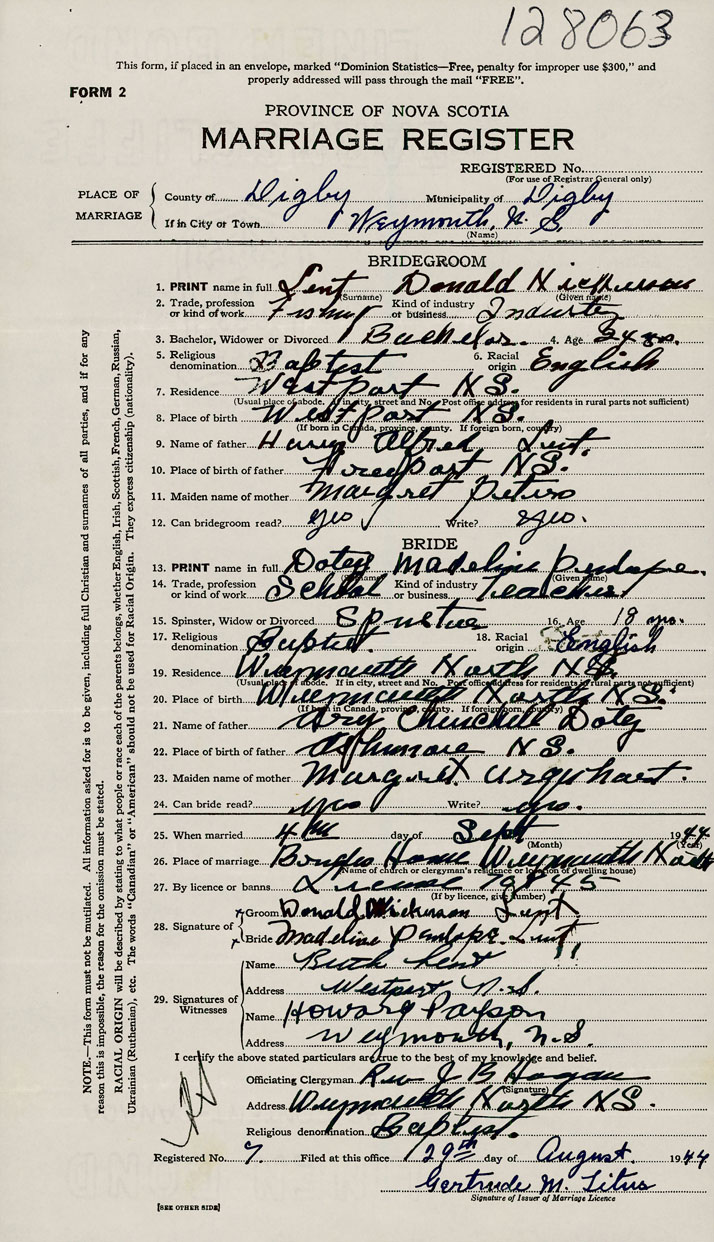 128063
This form, if placed in an envelope, marked "Dominion Statistics—Free, penalty for improper use $300," and
properly addressed will pass through the mail "FREE".
FORM 2
PROVINCE OF NOVA SCOTIA
MARRIAGE REGISTER
REGISTERED No.
(For use of Registrar General only)
PLACE OF MARRIAGE
County of Digby Municipality of Digby
If in City or Town Weymouth, N. S.
(Name)
BRIDEGROOM
1. PRINT name in full Lent Donald Nickerson
(Surname) (Given name)
2. Trade, profession or kind of work Fishing Kind of industry or business Industry
3. Bachelor, Widower or Divorced Bachelor. 4. Age 24 yrs.
5. Religious denomination Baptist 6. Racial origin English
7. Residence Westport N S.
(Usual place of abode. If in city, street and No. Post office address for residents in rural parts not sufficient)
8. Place of birth Westport N S.
(If born in Canada, province, county. If foreign born, country)
9. Name of father Harry Alfred Lent.
10. Place of birth of father Freeport N S.
11. Maiden name of mother Margret Peters
12. Can bridegroom read? yes Write? yes.
BRIDE
13. PRINT name in full Doty Madeline
(Given name)
14. Trade, profession or kind of work School Kind of industry or business Teacher
15. Spinster, Widow or Divorced Spinster 16. Age 18 yrs.
17. Religious denomination Baptist. 18. Racial origin English
19. Residence Weymouth North N S.
(Usual place of abode. If in city, street and No. Post office address for residents in rural parts not sufficient)
20. Place of birth Weymouth North N S.
(If born in Canada, province, county. If foreign born, country)
21. Name of father Churchill Doty
22. Place of birth of father Ashmore N S.
23. Maiden name of mother Margret Urquhart.
24. Can bride read? yes Write? yes.
25. When married 4th day of Sept 1944
(Month) (Year)
26. Place of marriage Brides Home Weymouth North
(Name of church or clergyman's residence or location of dwelling house)
27. By licence or banns License
(If by licence, give number)
28. Signature of
Groom Donald Nickerson Lent
Bride Madeline Penlope Lent
29. Signatures of Witnesses
Name Lent
Address Westport N. S.
Name Howard Payson
Address Weymouth, N. S.
I certify the above stated particulars are true to the best of my knowledge and belief.
Officiating Clergyman Rev J B Hogan
(Signature)
Address Weymouth North N S.
Religious denomination Baptist.
Registered No. 7. Filed at this office 29th day of August. 1944
Gertrude M. Titus
Signature of Issuer of Marriage Licence
[SEE OTHER SIDE]
NOTE.—This form must not be mutilated. All information asked for is to be given, including full Christian and surnames of all parties, and if for any
reason this is impossible, the reason for the omission must be stated.
RACIAL ORIGIN will be described by stating to what people or race each of the parents belongs, whether English, Irish, Scottish, French, German, Russian,
Ukrainian (Ruthenian), etc. The words "Canadian" or "American" should not be used for Racial Origin. They express citizenship (nationality).